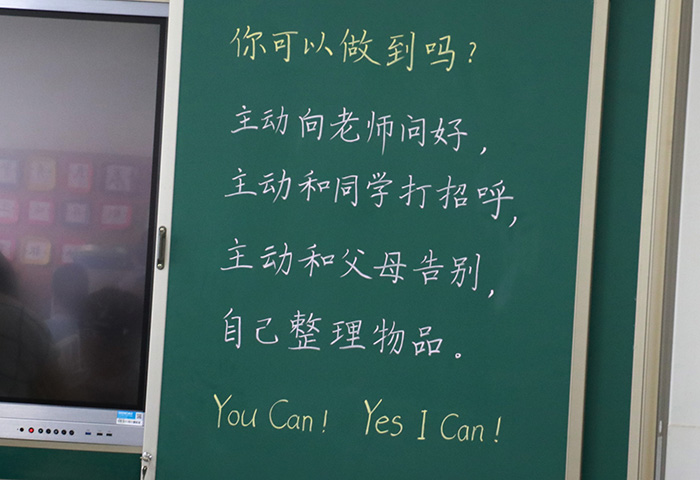 你可以做到吗?
主动向老师问好,
主动和同学打招呼,
主动和父母告别,
自己整理物品。
You Can! Yes I Can!